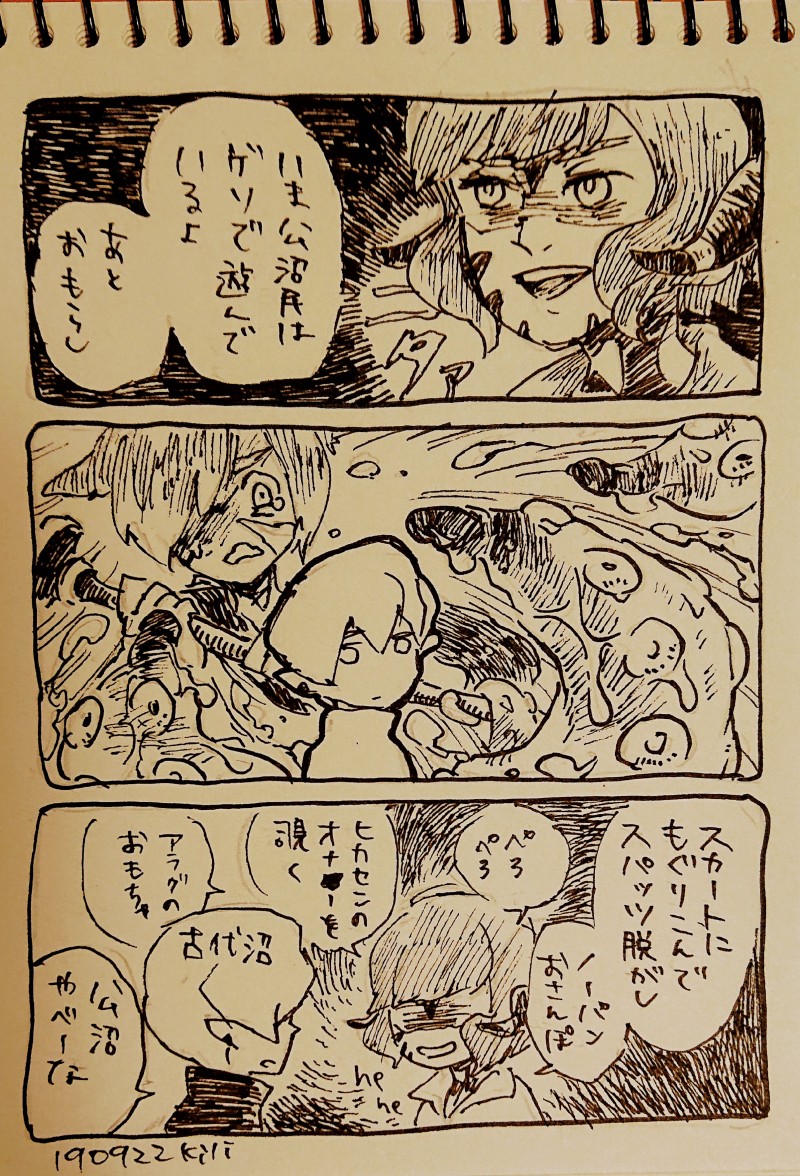 いま公沼民は
ゲソで遊んで
いるよ
あと
おもらし
スカートに
もぐりこんで
スパッツ脱がし
ノーパン
おさんぽ
ペろ
ペろ
ヒカセンの
オナ●ーを
覗く
アラグの
おもちゃ
古代沼
公沼
やべーな
he
he
190922 Kili